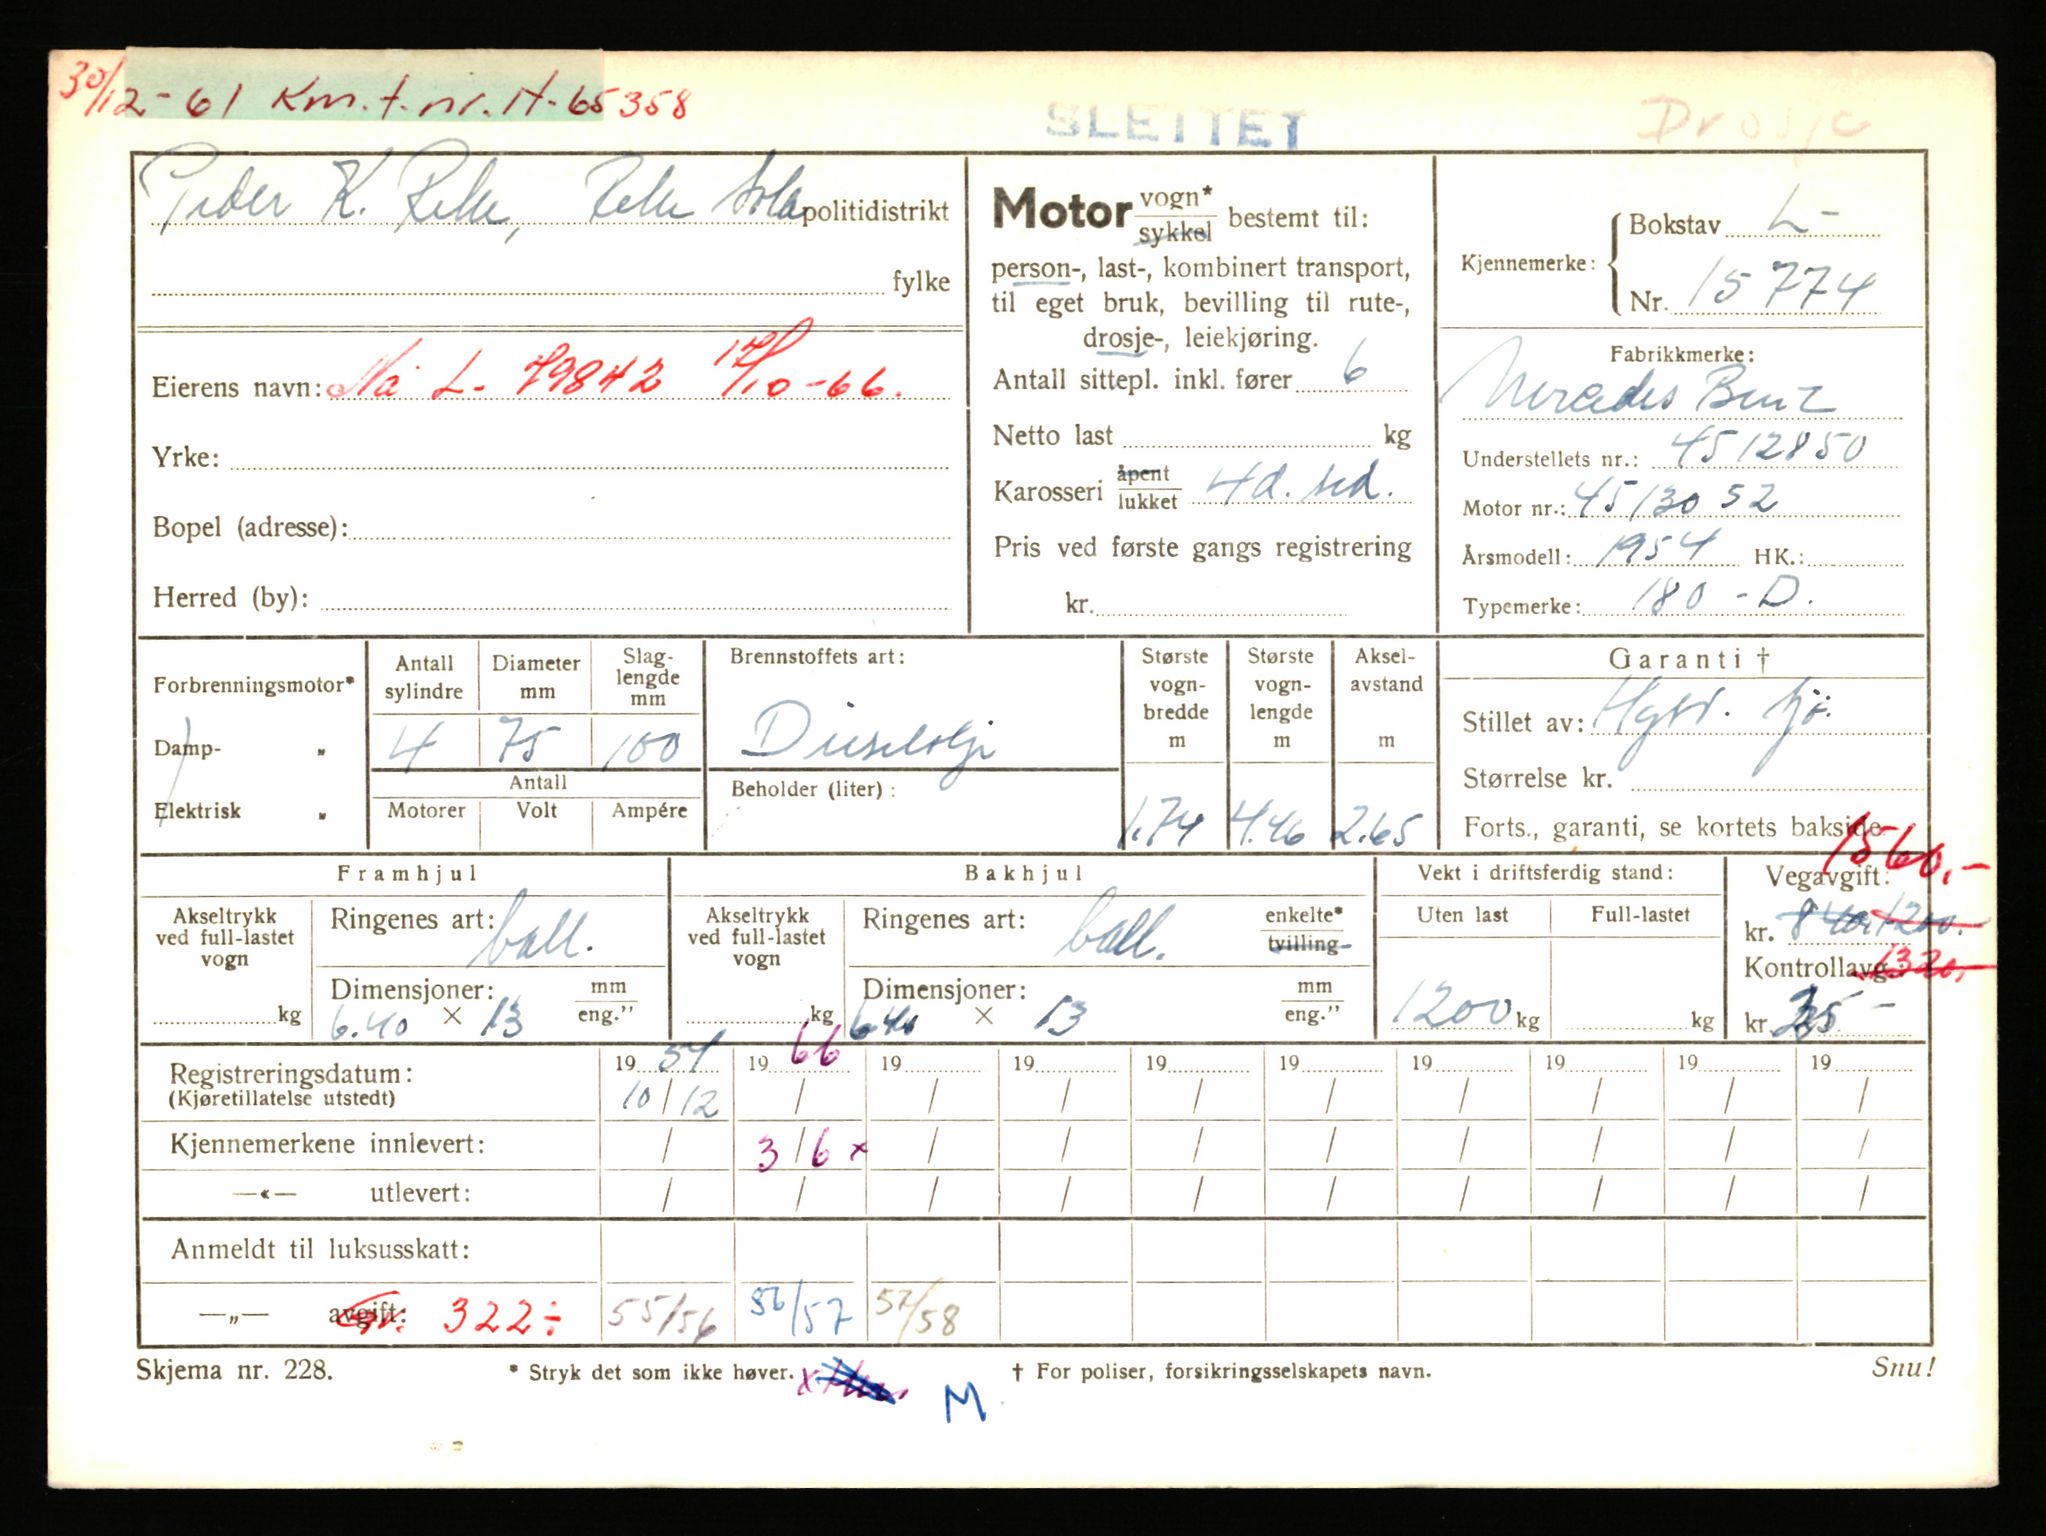 30/12-61 Km.t.nr. H-65358
SLETTET
Drosje
Peder K. Relle, Sola politidistrikt
fylke
Eierens navn: Nå L- 79842 17/10-66.
Yrke:
Bopel (adresse):
Herred (by):
Motor vogn* sykkel bestemt til:
person-, last-, kombinert transport,
til eget bruk, bevilling til rute-,
drosje-, leiekjøring.
Antall sittepl. inkl. fører 6
Netto last kg
Karosseri åpent lukket 4d. sed.
Pris ved første gangs registrering
kr.
Kjennemerke: Bokstav L-
Nr. 15774
Fabrikkmerke:
Mercedes Benz
Understellets nr.: 4512850
Motor nr.: 4513052
Årsmodell: 1954 HK.:
Typemerke: 180-D.
Forbrenningsmotor*
Damp- „
Elektrisk „
Antall sylindre 4
Diameter mm 75
Slaglengde mm 100
Antall
Motorer Volt Ampére
Brennstoffets art:
Dieselolje
Beholder (liter):
Største vogn-bredde m 1.74
Største vogn-lengde m 4.46
Aksel-avstand m 2.65
Garanti †
Stillet av:
Størrelse kr.
Forts., garanti, se kortets bakside
Framhjul
Akseltrykk ved full-lastet vogn kg
Ringenes art: ball.
Dimensjoner: mm eng.”
6.40 × 13
Bakhjul
Akseltrykk ved full-lastet vogn kg
Ringenes art: ball. enkelte* tvilling
Dimensjoner: mm eng.”
6.40 × 13
Vekt i driftsferdig stand:
Uten last Full-lastet
1200 kg kg
1560,-
Vegavgift:
kr. 840 1200.-
Kontrollavg.: 1320,-
kr. 35-
Registreringsdatum: 19 54 19 66 19 19 19 19 19 19 19 19
(Kjøretillatelse utstedt) 10/12 / / / / / / / / /
Kjennemerkene innlevert: / 3/6 x / / / / / / / /
—«— utlevert: / / / / / / / / / /
Anmeldt til luksusskatt:
—„— avgift: 322÷ 55/56 56/57 57/58
Skjema nr. 228. * Stryk det som ikke høver. † For poliser, forsikringsselskapets navn. Snu!
M.